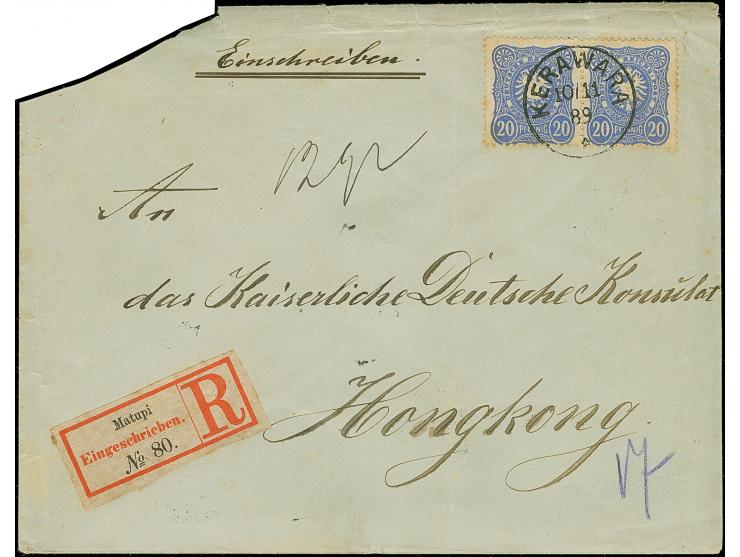 Einschreiben.
KERAWARA
10/11
89
20 PFENNIG 20
20 PFENNIG 20
An
das Kaiserliche Deutsche Konsulat
Hongkong.
Matupi
Eingeschrieben.
№ 80.
R